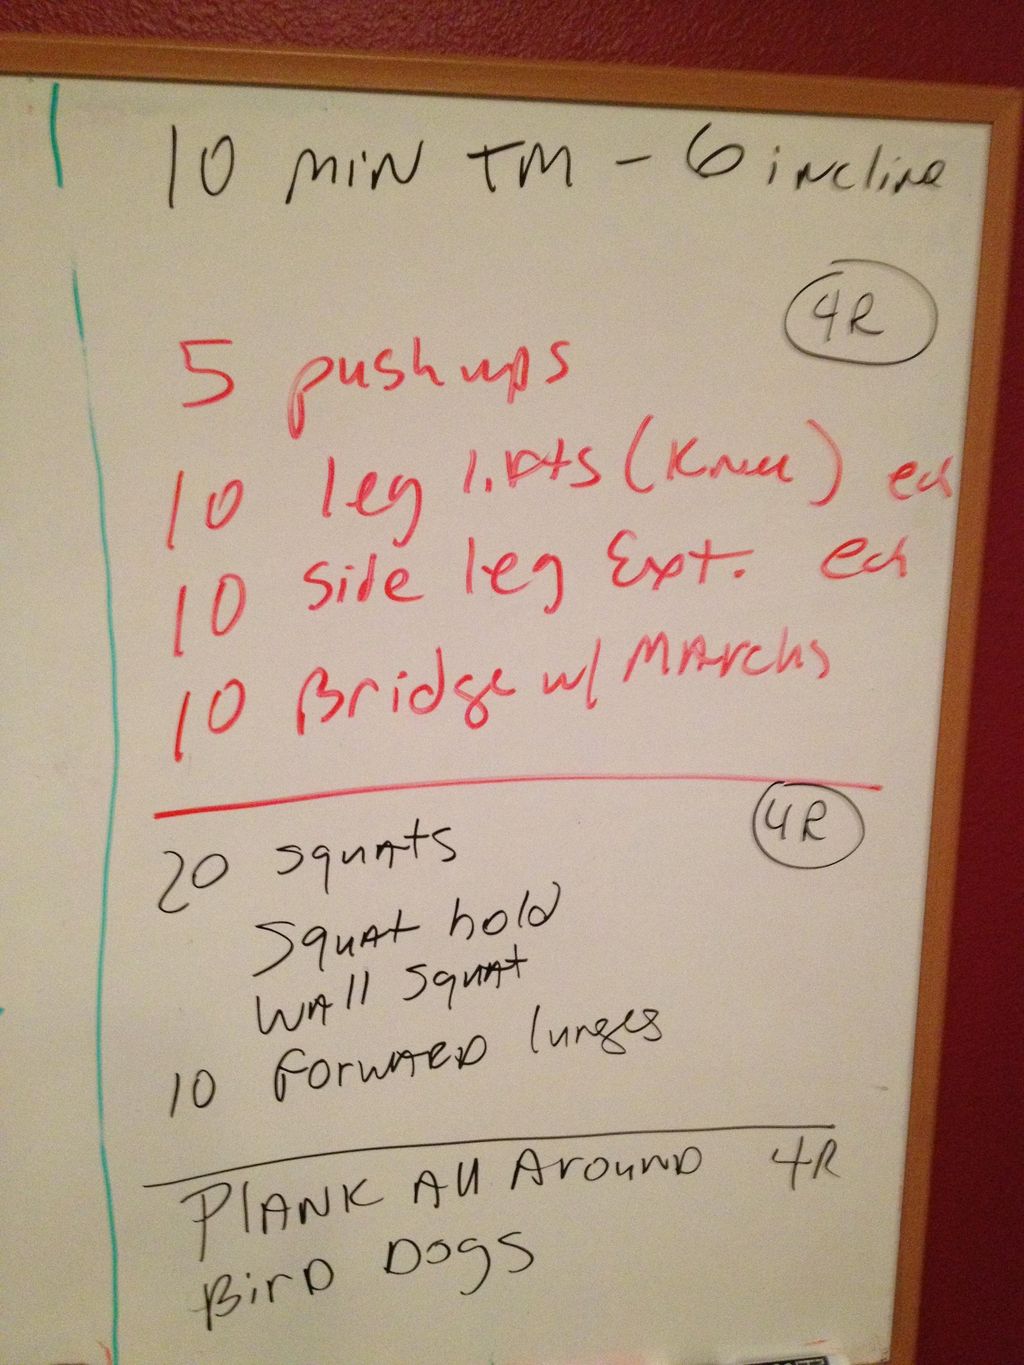 10 MIN TM - 6 incline
4R
5 push ups
10 leg lifts (Knee) ea
10 Side leg Ext. ea
10 Bridge w/ MArchs
4R
20 squAts
SquAt hold
WAll squat
10 ForwARD lunges
PlANK All ArounD 4R
BirD Dogs